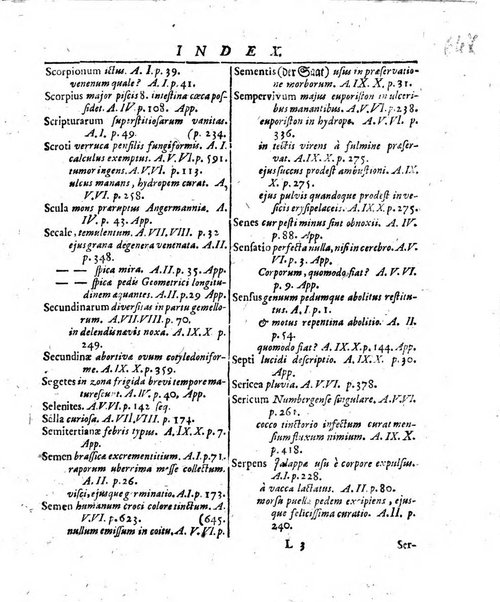 INDEX.
Scorpionum ictus. A. I. p. 39.
venenum quale? A. I. p. 41.
Scorpius major piscis 8. intestina cæca possidet. A. IV. p. 108. App.
Scripturarum superstitiosarum vanitas.
A. I. p. 49. (p. 234.
Scroti verruca pensilis fungiformis. A. I.
calculus exemptus. A. V. VI. p. 591.
tumor ingens. A. V. VI. p. 113.
ulcus manans, hydropem curat. A.
V. VI. p. 258.
Scula mons præruptus Angermanniæ. A.
IV. p. 43. App.
Secale, temulentum. A. VII. VIII. p. 32
ejus grana degenera venenata. A. II.
p. 348.
— — spica mira. A. II. p. 35. App.
— — spica pedis Geometrici longitudinem
æquantes. A. II. p. 29 App.
Secundinarum diversitas in partu gemellorum.
A. VII. VIII. p. 70.
in delendis nævis noxa. A. IX. X. p.
249.
Secundinæ abortivæ ovum cotyledoniforme.
A. IX. X. p. 359.
Segetes in zona frigida brevi tempore maturescunt.
A. IV. p. 40. App.
Selenites. A. V. VI. p. 142 seq.
Sella curiosa. A. VII. VIII. p. 174.
Semitertianæ febris typus. A. IX. X. p. 7.
App.
Semen brassicæ excrementitium. A. I. p. 71.
raporum uberrima messe collectum.
A. II. p. 26.
visci, ejusque germinatio. A. I. p. 173.
Semen humanum croci colore tinctum. A.
V. VI. p. 623. (645.
nullum emissum in coitu. A. VI. p.
Sementis (der Saat) usus in præservatione
morborum. A. IX. X. p. 31.
Sempervivum majus euporiston in ulceribus
manantibus. A. V. VI. p. 238.
euporiston in hydrope. A. V. VI. p.
336.
in tectis virens à fulmine præservat.
A. IX. X. p. 275.
ejus succus prodest ambustioni. A. IX.
X. p. 275.
ejus pulvis quandoque prodest in vesicis
erysipelaceis. A. IX. X. p. 275.
Senes cur pesti minus sint obnoxii. A. IV.
p. 88. App.
Sensatio perfecta nulla, nisi in cerebro. A. V.
VI. p. 3. App.
Corporum, quomodo fiat? A. V. VI.
p. 9. App.
Sensus genuum pedumque abolitus restitutus.
A. I. p. 1.
& motus repentina abolitio. A. II.
p. 54.
quomodo fiat? A. IX. X. p. 144. App.
Septi lucidi descriptio. A. IX. X. p. 30.
App.
Sericea pluvia. A. V. VI. p. 378.
Sericum Numbergense singulare. A. V. VI.
p. 261.
cocco tinctorio infectum curat mensium
fluxum nimium. A. IX. X.
p. 418.
Serpens Jalappæ usu è corpore expulsus.
A. I. p. 228.
à vacca lactatus. A. II. p. 80.
morsu puellæ pedem excipiens, ejusque
felicissima curatio. A. II. p.
240.
L 3
Ser-